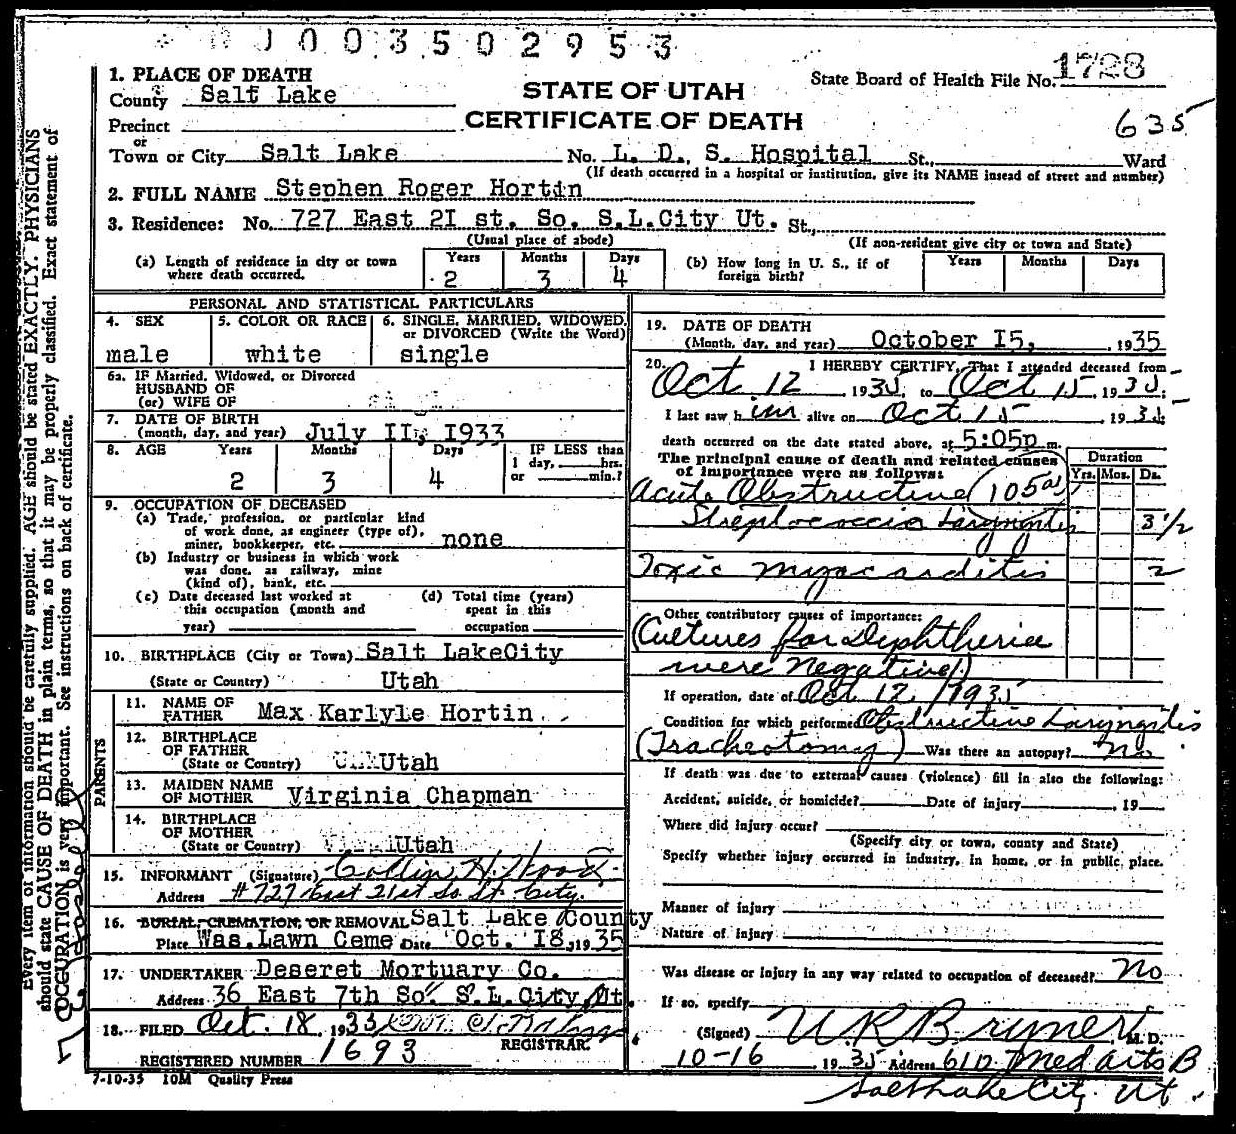 R J 0 0 3 5 0 2 9 5 3
State Board of Health File No. 1728
STATE OF UTAH
CERTIFICATE OF DEATH
635
1. PLACE OF DEATH
County Salt Lake
Precinct
or
Town or City Salt Lake No. L. D. S. Hospital St., Ward
(If death occurred in a hospital or institution, give its NAME insead of street and number)
2. FULL NAME Stephen Roger Hortin
3. Residence: No. 727 East 2I st. So. S.L.City Ut. St.,
(Usual place of abode) (If non-resident give city or town and State)
(a) Length of residence in city or town where death occurred. Years 2 Months 3 Days 4
(b) How long in U. S., if of foreign birth? Years Months Days
PERSONAL AND STATISTICAL PARTICULARS
4. SEX male
5. COLOR OR RACE white
6. SINGLE, MARRIED, WIDOWED, or DIVORCED (Write the Word) single
6a. IF Married, Widowed, or Divorced
HUSBAND OF
(or) WIFE OF
7. DATE OF BIRTH
(month, day, and year) July II, I933
8. AGE Years 2 Months 3 Days 4 IF LESS than 1 day, hrs. or min.?
9. OCCUPATION OF DECEASED
(a) Trade, profession, or particular kind
of work done, as engineer (type of),
miner, bookkeeper, etc. none
(b) Industry or business in which work
was done, as railway, mine
(kind of), bank, etc.
(c) Date deceased last worked at this occupation (month and year)
(d) Total time (years) spent in this occupation
10. BIRTHPLACE (City or Town) Salt LakeCity
(State or Country) Utah
PARENTS
11. NAME OF FATHER Max Karlyle Hortin
12. BIRTHPLACE OF FATHER
(State or Country) Utah
13. MAIDEN NAME OF MOTHER Virginia Chapman
14. BIRTHPLACE OF MOTHER
(State or Country) Utah
15. INFORMANT (Signature) H. Wood
Address #727 East 21st So. St. City.
16. BURIAL, CREMATION, OR REMOVAL Salt Lake County
Place Was.Lawn Ceme Date Oct. I8, 1935
17. UNDERTAKER Deseret Mortuary Co.
Address 36 East 7th So. S.L.City,Ut.
18. FILED Oct. 18, 1935
REGISTRAR.
REGISTERED NUMBER 1693
7-10-35 10M Quality Press
19. DATE OF DEATH
(Month, day, and year) October I5, , 1935
20. I HEREBY CERTIFY, That I attended deceased from
Oct 12, 1935, to Oct 15, 1935;
I last saw him alive on Oct 15 1935;
death occurred on the date stated above, at 5:05p m.
The principal cause of death and related causes
of importance were as follows:
Duration
Yrs. Mos. Ds.
Acute Obstructive (105a)
Streptococcic Laryngitis 3 1/2
Toxic myocarditis 2
Other contributory causes of importance:
(Cultures for Diphtheria
were negative.)
If operation, date of Oct 12, 1935
Condition for which performed Obstructive Laryngitis
(Tracheotomy) Was there an autopsy? no
If death was due to external causes (violence) fill in also the following:
Accident, suicide, or homicide? Date of injury , 19
Where did injury occur?
(Specify city or town, county and State)
Specify whether injury occurred in industry, in home, or in public place.
Manner of injury
Nature of injury
Was disease or injury in any way related to occupation of deceased? No
If so, specify
(Signed) U R Bryner M. D.
10-16, 1935 Address 610 Med Arts B
Salt Lake City, Ut.
Every item of information should be carefully supplied. AGE should be stated EXACTLY. PHYSICIANS
should state CAUSE OF DEATH in plain terms, so that it may be properly classified. Exact statement of
OCCUPATION is very important. See instructions on back of certificate.